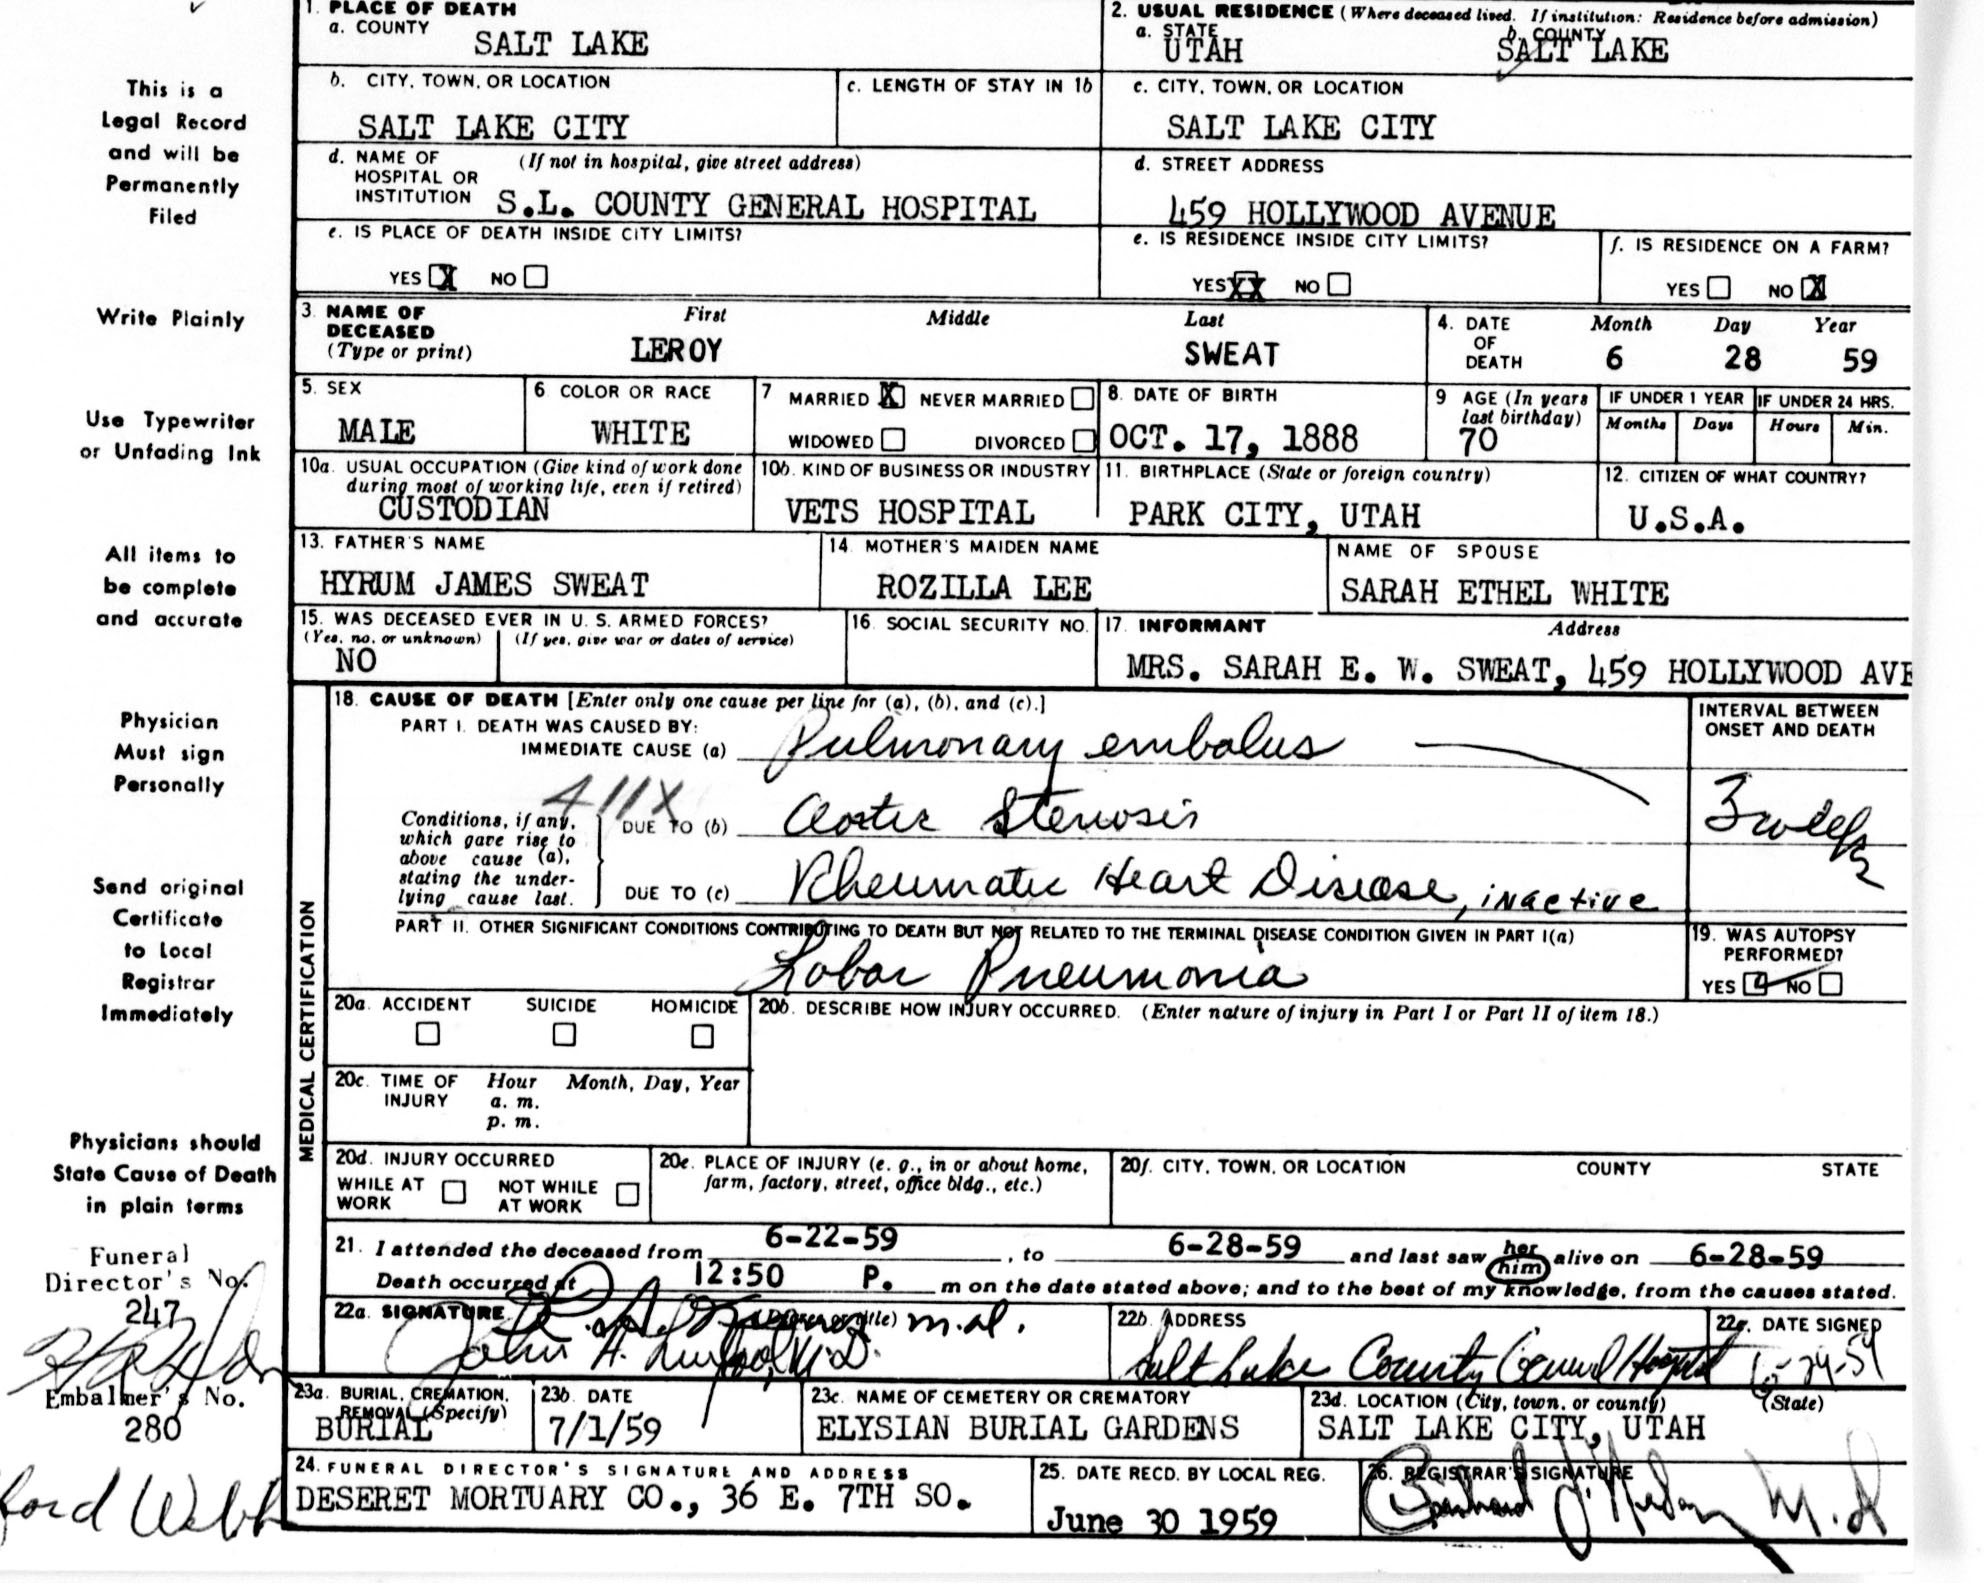 This is a
Legal Record
and will be
Permanently
Filed
Write Plainly
Use Typewriter
or Unfading Ink
All items to
be complete
and accurate
Physician
Must sign
Personally
Send original
Certificate
to Local
Registrar
Immediately
Physicians should
State Cause of Death
in plain terms
Funeral
Director's No.
247
Embalmer's No.
280
Webb
1. PLACE OF DEATH
a. COUNTY SALT LAKE
2. USUAL RESIDENCE (Where deceased lived. If institution: Residence before admission)
a. STATE UTAH b. COUNTY SALT LAKE
b. CITY, TOWN, OR LOCATION
SALT LAKE CITY
c. LENGTH OF STAY IN 1b
c. CITY, TOWN, OR LOCATION
SALT LAKE CITY
d. NAME OF HOSPITAL OR INSTITUTION (If not in hospital, give street address)
S.L. COUNTY GENERAL HOSPITAL
d. STREET ADDRESS
459 HOLLYWOOD AVENUE
e. IS PLACE OF DEATH INSIDE CITY LIMITS?
YES X NO
e. IS RESIDENCE INSIDE CITY LIMITS?
YES XX NO
f. IS RESIDENCE ON A FARM?
YES NO X
3. NAME OF DECEASED (Type or print) First Middle Last
LEROY SWEAT
4. DATE OF DEATH Month Day Year
6 28 59
5. SEX
MALE
6 COLOR OR RACE
WHITE
7 MARRIED X NEVER MARRIED
WIDOWED DIVORCED
8. DATE OF BIRTH
OCT. 17, 1888
9 AGE (In years last birthday)
70
IF UNDER 1 YEAR IF UNDER 24 HRS.
Months Days Hours Min.
10a. USUAL OCCUPATION (Give kind of work done during most of working life, even if retired)
CUSTODIAN
10b. KIND OF BUSINESS OR INDUSTRY
VETS HOSPITAL
11. BIRTHPLACE (State or foreign country)
PARK CITY, UTAH
12. CITIZEN OF WHAT COUNTRY?
U.S.A.
13. FATHER'S NAME
HYRUM JAMES SWEAT
14. MOTHER'S MAIDEN NAME
ROZILLA LEE
NAME OF SPOUSE
SARAH ETHEL WHITE
15. WAS DECEASED EVER IN U. S. ARMED FORCES?
(Yes, no, or unknown) (If yes, give war or dates of service)
NO
16. SOCIAL SECURITY NO.
17. INFORMANT Address
MRS. SARAH E. W. SWEAT, 459 HOLLYWOOD AVE
MEDICAL CERTIFICATION
18. CAUSE OF DEATH [Enter only one cause per line for (a), (b), and (c).]
PART I. DEATH WAS CAUSED BY:
IMMEDIATE CAUSE (a) Pulmonary embolus
411X
Conditions, if any, which gave rise to above cause (a), stating the underlying cause last.
DUE TO (b) Aortic Stenosis
DUE TO (c) Rheumatic Heart Disease, inactive
INTERVAL BETWEEN
ONSET AND DEATH
3 weeks
PART II. OTHER SIGNIFICANT CONDITIONS CONTRIBUTING TO DEATH BUT NOT RELATED TO THE TERMINAL DISEASE CONDITION GIVEN IN PART I(a)
Lobar Pneumonia
19. WAS AUTOPSY PERFORMED?
YES NO
20a. ACCIDENT SUICIDE HOMICIDE
20b. DESCRIBE HOW INJURY OCCURRED. (Enter nature of injury in Part I or Part II of item 18.)
20c. TIME OF INJURY Hour Month, Day, Year
a. m.
p. m.
20d. INJURY OCCURRED
WHILE AT WORK NOT WHILE AT WORK
20e. PLACE OF INJURY (e. g., in or about home, farm, factory, street, office bldg., etc.)
20f. CITY, TOWN, OR LOCATION COUNTY STATE
21. I attended the deceased from 6-22-59, to 6-28-59 and last saw her him alive on 6-28-59
Death occurred at 12:50 P. m on the date stated above; and to the best of my knowledge, from the causes stated.
22a. SIGNATURE (Degree or title) M.D.
John H. M.D.
22b. ADDRESS
Salt Lake County General Hospital
22c. DATE SIGNED
6-29-59
23a. BURIAL, CREMATION, REMOVAL (Specify)
BURIAL
23b. DATE
7/1/59
23c. NAME OF CEMETERY OR CREMATORY
ELYSIAN BURIAL GARDENS
23d. LOCATION (City, town, or county) (State)
SALT LAKE CITY, UTAH
24. FUNERAL DIRECTOR'S SIGNATURE AND ADDRESS
DESERET MORTUARY CO., 36 E. 7TH SO.
25. DATE RECD. BY LOCAL REG.
June 30 1959
26. REGISTRAR'S SIGNATURE
M.D